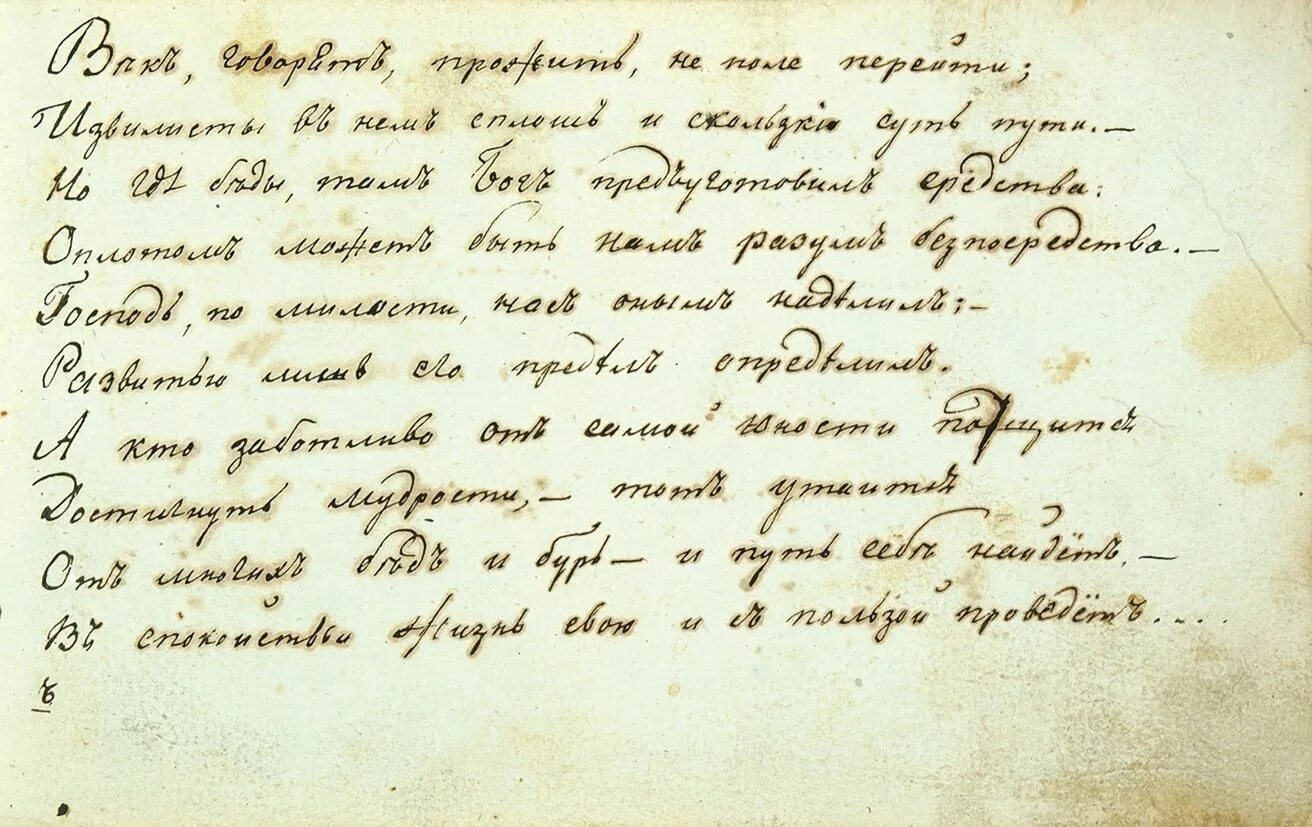 Вѣкъ, говорятъ, прожить, не поле перейти;
Извилисты въ немъ сплошь и скользкiи суть пути. —
Но гдѣ бѣды, тамъ Богъ предъуготовилъ средства:
Оплотомъ можетъ быть намъ разумъ безпосредства. —
Господь, по милости, насъ онымъ надѣлилъ; —
Развитью лишь его предѣлъ опредѣлилъ.
А кто заботливо отъ самой юности потщится
Достигнуть мудрости, — тотъ утаится
Отъ многихъ бѣдъ и бурь — и путь себѣ найдётъ, —
Въ спокойствьи жизнь свою и съ пользой проведётъ....
ъ